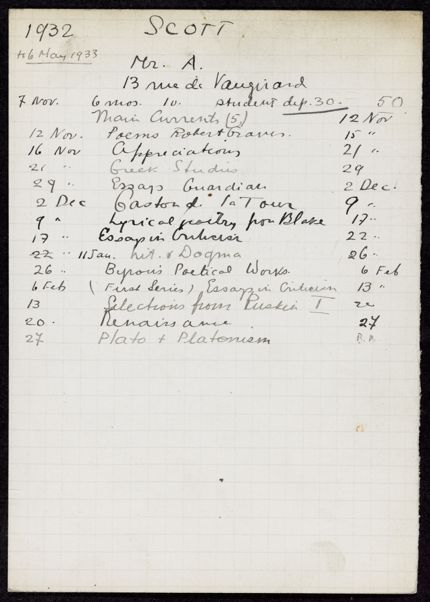 1932 SCOTT
to 6 May 1933
Mr. A.
13 rue de Vaugirard
7 Nov. 6 mos. 10. student dep. 30. 50
Main Currents (5) 12 Nov
12 Nov. Poems Robert Graves. 15 "
16 Nov Appreciations 21 "
21 " Greek Studies 29
29 " Essays Guardian 2 Dec.
2 Dec Gaston de la Tour 9 "
9 " Lyrical poetry from Blake 17 "
17 " Essays in Criticism 22 "
22 " 11 Jan. Lit. & Dogma 26 "
26 " Byron's Poetical Works 6 Feb
6 Feb (First Series) Essays in Criticism 13 "
13 Selections from Ruskin I 20
20. Renaissance 27
27 Plato & Platonism